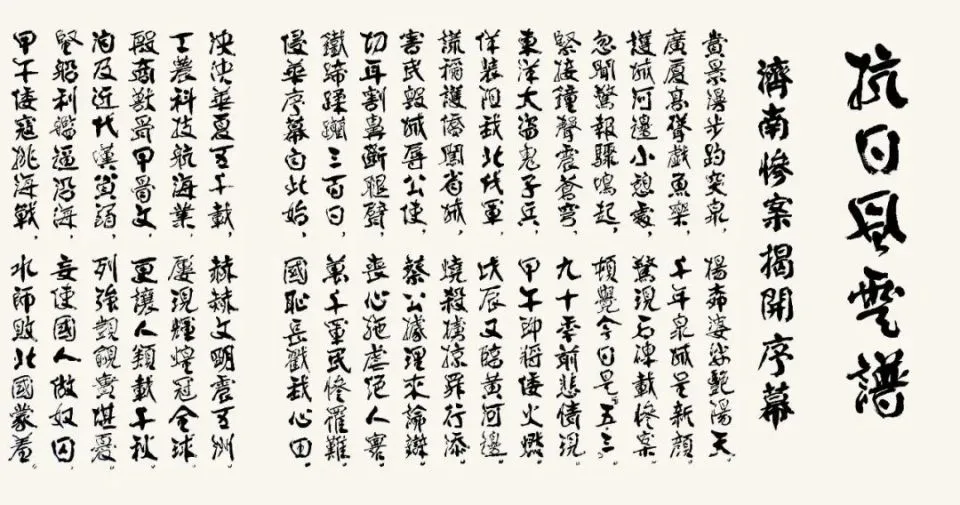 抗日風雲譜
濟南慘案揭開序幕
賞景漫步趵突泉，楊柳婆娑艷陽天。
廣廈高聳戲魚樂，千年泉城是新顏。
護城河邊小憩處，驚現石碑載慘案。
忽聞驚報驟鳴起，頓覺今日是“五三”。
緊接鐘聲震蒼穹，九十年前悲情現。
東洋大盜鬼子兵，甲午即將倭火燃。
佯裝阻我北伐軍，戊辰又臨黃河邊。
謊稱護僑闖省城，燒殺擄掠罪行添。
害民毀城辱公使，蔡公據理來論辯。
切耳割鼻斷腿臂，喪心施虐絕人寰。
鐵蹄蹂躪三百日，萬千軍民慘罹難。
侵華序幕自此始，國恥長戳我心田。
泱泱華夏五千載，赫赫文明震五洲。
工農科技航海業，屢現輝煌冠全球。
殷商獸骨甲骨文，更讓人類載千秋。
洵及近代漢貧弱，列強覬覦實堪憂。
堅船利艦逼沿海，妄使國人做奴囚。
甲午倭寇挑海戰，水師敗北國蒙羞。